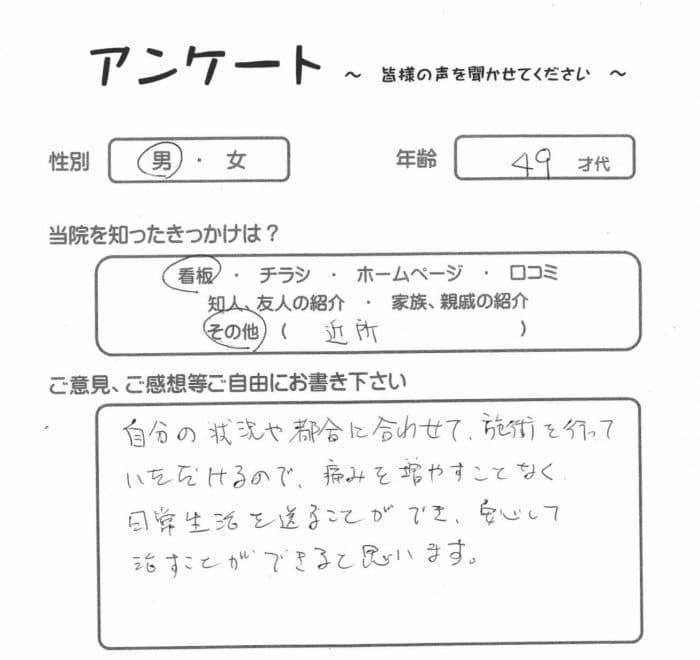 アンケート ～ 皆様の声を聞かせてください ～
性別 男 ・ 女 年齢 49 才代
当院を知ったきっかけは？
看板 ・ チラシ ・ ホームページ ・ 口コミ
知人、友人の紹介 ・ 家族、親戚の紹介
その他 ( 近所 )
ご意見、ご感想等ご自由にお書き下さい
自分の状況や都合に合わせて、施術を行って
いただけるので、痛みを増やすことなく
日常生活を送ることができ、安心して
治すことができると思います。